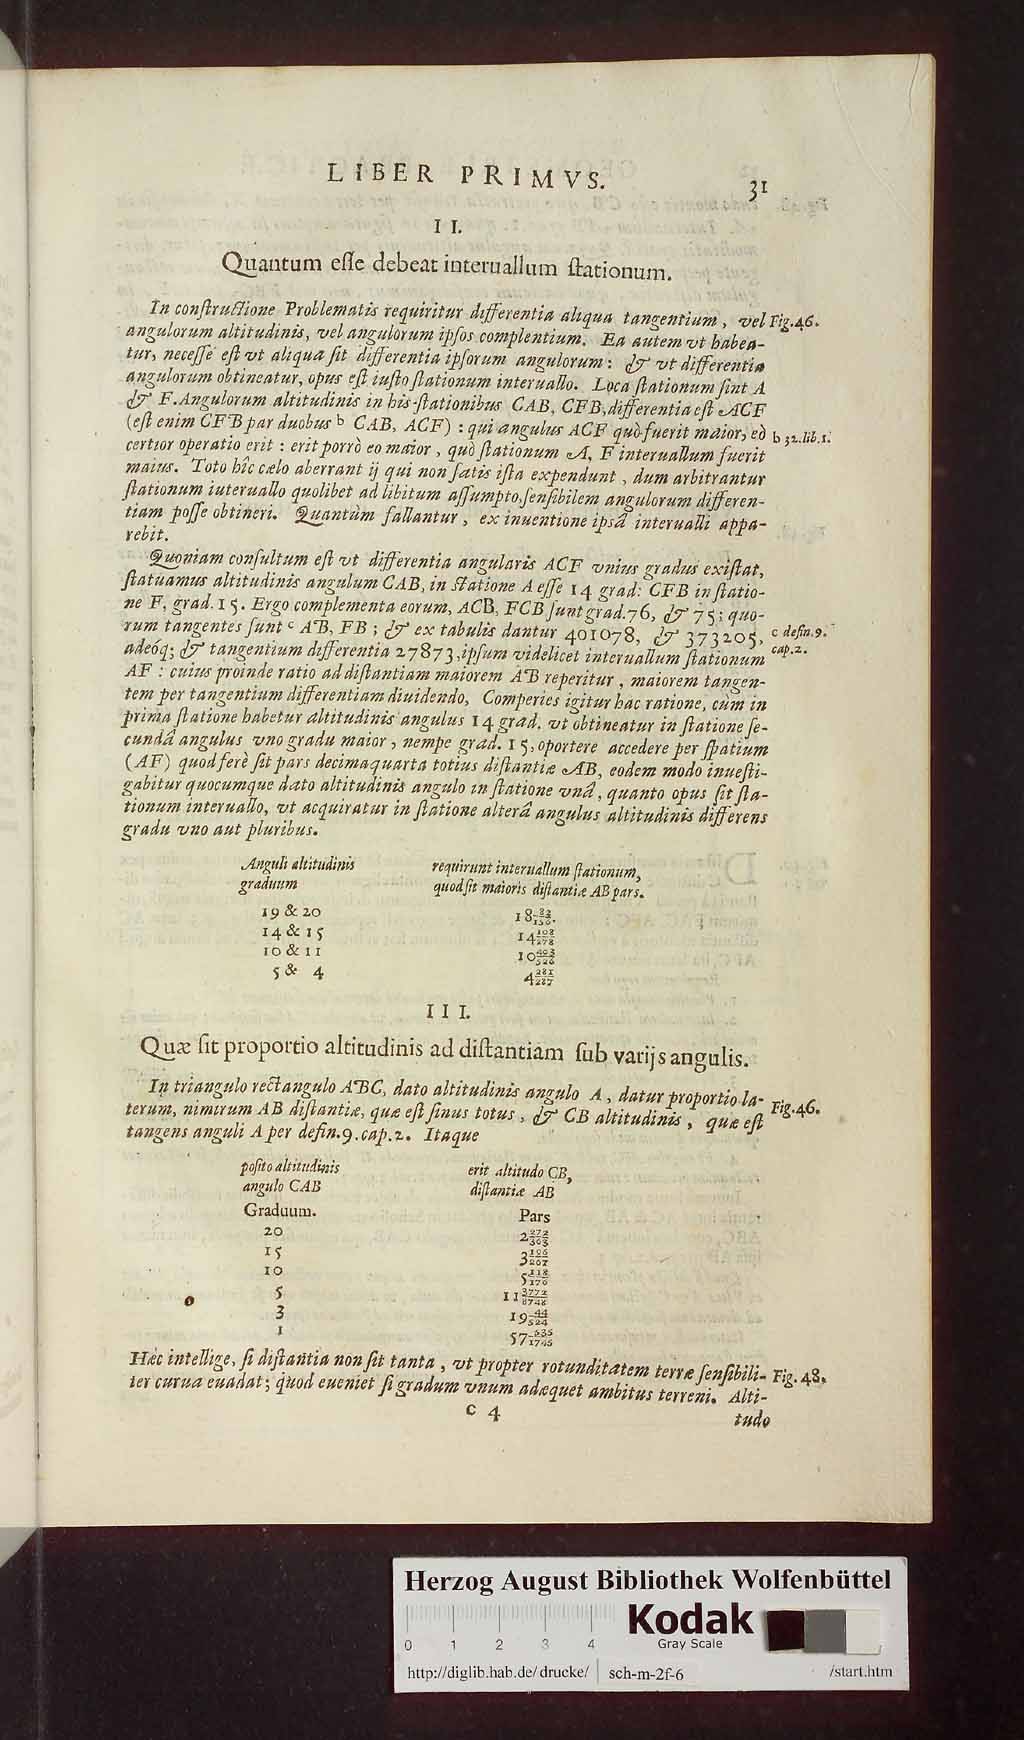 LIBER PRIMVS.
31
II.
Quantum eſſe debeat interuallum ſtationum.
In conſtructione Problematis requiritur differentia aliqua tangentium, vel Fig.46.
angulorum altitudinis, vel angulorum ipſos complentium. Ea autem vt habea-
tur, neceſſe eſt vt aliqua ſit differentia ipſorum angulorum: & vt differentia
angulorum obtineatur, opus eſt iuſto ſtationum interuallo. Loca ſtationum ſint A
& F. Angulorum altitudinis in his ſtationibus CAB, CFB, differentia eſt ACF
(eſt enim CFB par duobus b CAB, ACF) : qui angulus ACF quò fuerit maior, eò b 32.lib.1.
certior operatio erit : erit porrò eo maior, quò ſtationum A, F interuallum fuerit
maius. Toto hîc cælo aberrant ij qui non ſatis iſta expendunt, dum arbitrantur
ſtationum iuteruallo quolibet ad libitum aſſumpto, ſenſibilem angulorum differen-
tiam poſſe obtineri. Quantùm fallantur, ex inuentione ipsâ interualli appa-
rebit.
Quoniam conſultum eſt vt differentia angularis ACF vnius gradus exiſtat,
ſtatuamus altitudinis angulum CAB, in ſtatione A eſſe 14 grad: CFB in ſtatio-
ne F, grad. 15. Ergo complementa eorum, ACB, FCB ſunt grad. 76, & 75; quo-
rum tangentes ſunt c AB, FB ; & ex tabulis dantur 401078, & 373205, c defin.9.
adeóq; & tangentium differentia 27873, ipſum videlicet interuallum ſtationum cap.2.
AF : cuius proinde ratio ad diſtantiam maiorem AB reperitur, maiorem tangen-
tem per tangentium differentiam diuidendo, Comperies igitur hac ratione, cùm in
prima ſtatione habetur altitudinis angulus 14 grad. vt obtineatur in ſtatione ſe-
cundâ angulus vno gradu maior, nempe grad. 15, oportere accedere per ſpatium
(AF) quod ferè ſit pars decimaquarta totius diſtantiæ AB, eodem modo inueſti-
gabitur quocumque dato altitudinis angulo in ſtatione vnâ, quanto opus ſit ſta-
tionum interuallo, vt acquiratur in ſtatione alterâ angulus altitudinis differens
gradu vno aut pluribus.
Anguli altitudinis requirunt interuallum ſtationum,
graduum quod ſit maioris diſtantiæ AB pars.
19 & 20 18
14 & 15 14 108/278
10 & 11 10 403/526
5 & 4 4 281/287
III.
Quæ ſit proportio altitudinis ad diſtantiam ſub varijs angulis.
In triangulo rectangulo ABC, dato altitudinis angulo A, datur proportio la-
terum, nimirum AB diſtantiæ, quæ eſt ſinus totus, & CB altitudinis, quæ eſt Fig.46.
tangens anguli A per defin.9.cap.2. Itaque
poſito altitudinis erit altitudo CB,
angulo CAB diſtantiæ AB
Graduum. Pars
20 2 272/363
15 3 196/267
10 5 118/176
5 11 3772/8748
3 19 44/524
1 57
Hæc intellige, ſi diſtantia non ſit tanta, vt propter rotunditatem terræ ſenſibili- Fig.48.
ter curua euadat; quod eueniet ſi gradum vnum adæquet ambitus terreni. Alti-
c 4
tudo
Herzog August Bibliothek Wolfenbüttel
Kodak
Gray Scale
0 1 2 3 4
http://diglib.hab.de/drucke/ sch-m-2f-6 /start.htm